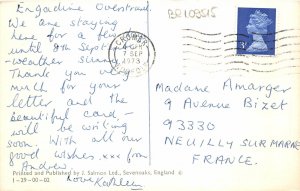 Engadine Overstrand.
We are staying
here for a few
until 8th Sept
- weather
Thank you very
much for your
letter and the
beautiful card. -
will be writing
soon. With all our
good wishes. xxx from
Andrew
Love Kathleen
Printed and Published by J. Salmon Ltd., Sevenoaks, England
1-39-00-02
BR108515
CROMER
SEP
1973
NORFOLK
3P
Madame Amarger
9 Avenue Bizet
93330
NEUILLY SUR MARNE
FRANCE.